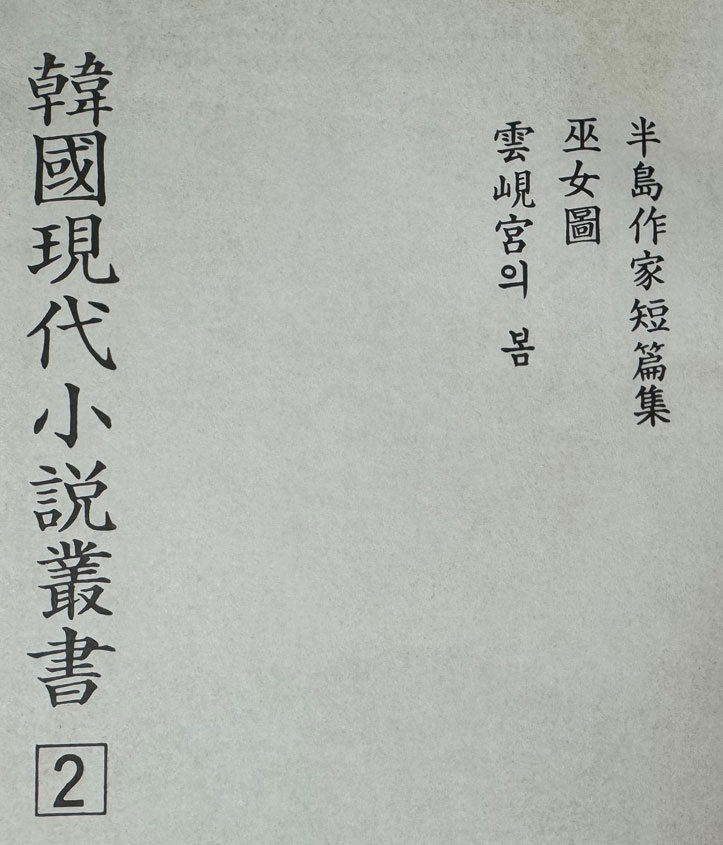 半島作家短篇集
巫女圖
雲峴宮의 봄
韓國現代小說叢書 2